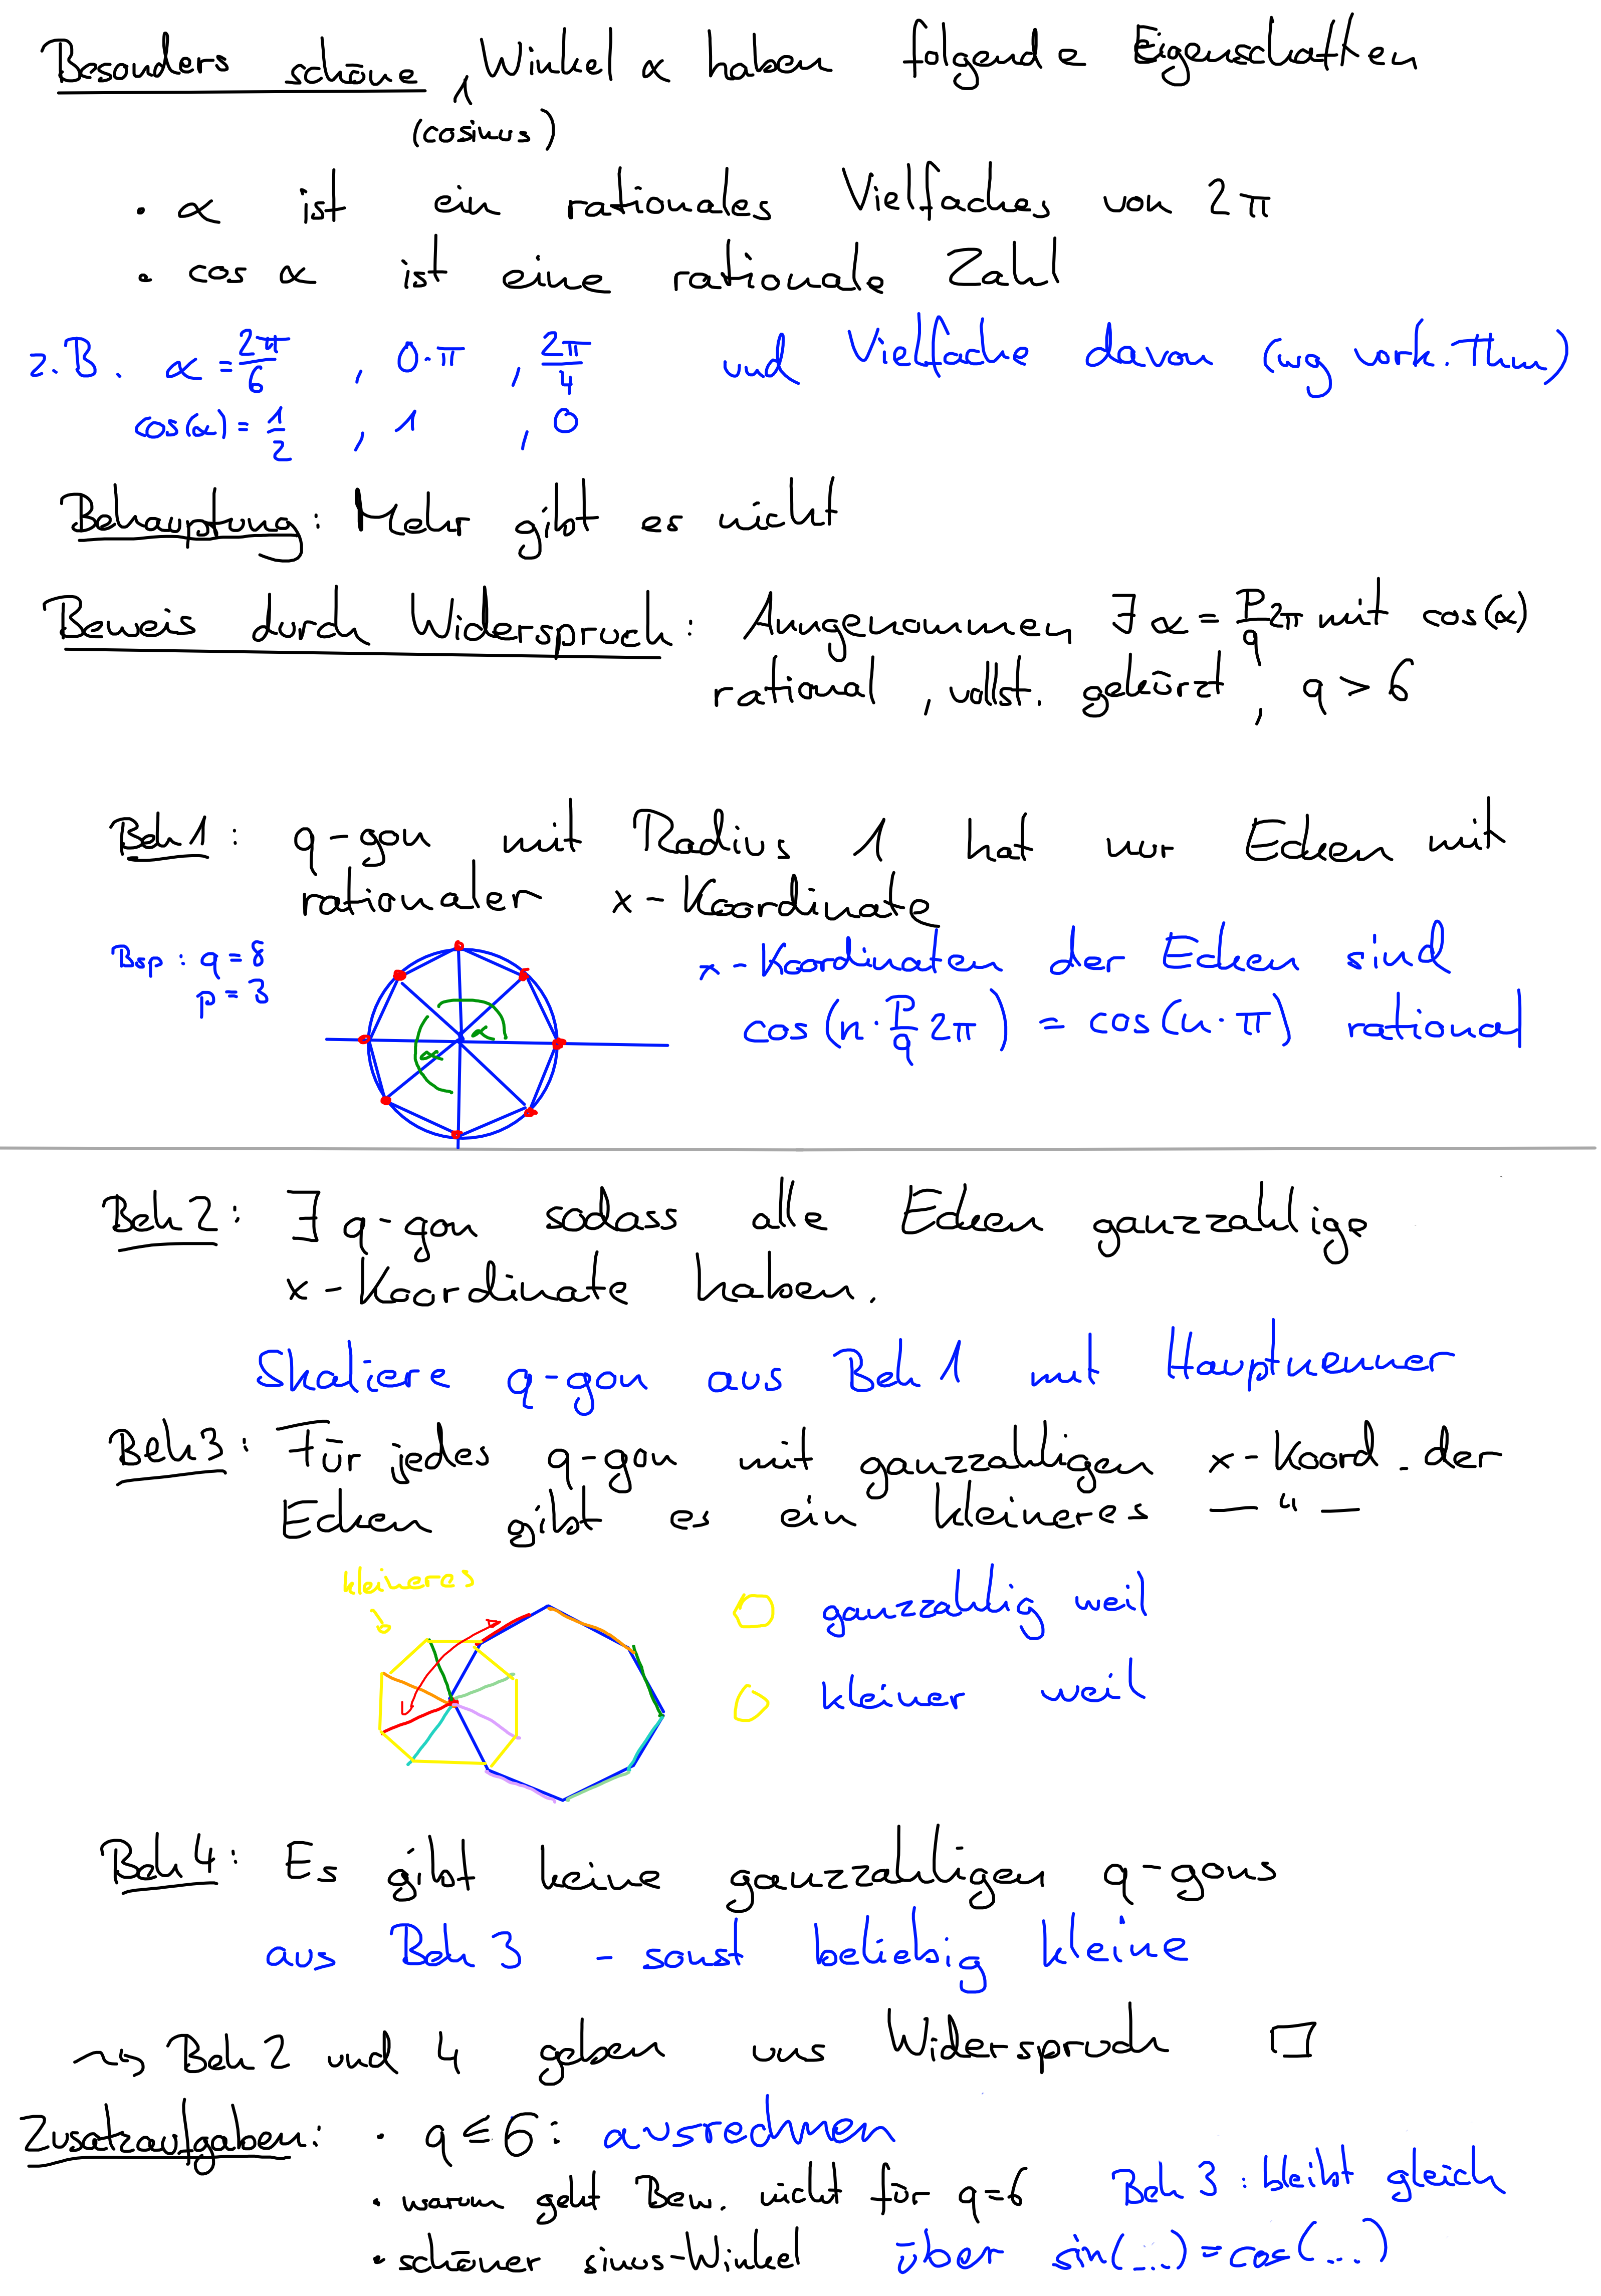 Besonders schöne Winkel α haben folgende Eigenschaften
(cosinus)
· α ist ein rationales Vielfaches von 2π
· cos α ist eine rationale Zahl
z.B. α = 2π/6 , 0·π , 2π/4 und Vielfache davon (wg vork. Thm)
cos(α) = 1/2 , 1 , 0
Behauptung: Mehr gibt es nicht
Beweis durch Widerspruch: Anngenommen ∃ α = p/q 2π mit cos(α)
rational , vollst. gekürzt , q > 6
Beh 1: q-gon mit Radius 1 hat nur Ecken mit
rationaler x-Koordinate
Bsp: q = 8
p = 3
α
α
x-Koordinaten der Ecken sind
cos(n · p/q 2π) = cos(n · π) rational
Beh 2: ∃ q-gon sodass alle Ecken ganzzahlige
x-Koordinate haben.
Skaliere q-gon aus Beh 1 mit Hauptnenner
Beh 3: Für jedes q-gon mit ganzzahligen x-Koord. der
Ecken gibt es ein kleineres — " —
kleineres
ganzzahlig weil
kleiner weil
Beh 4: Es gibt keine ganzzahligen q-gons
aus Beh 3 - sonst beliebig kleine
⇝ Beh 2 und 4 geben uns Widerspruch □
Zusatzaufgaben: · q ≤ 6: ausrechnen
· warum geht Bew. nicht für q=6 Beh 3: bleibt gleich
· schöner sinus-Winkel über sin(...) = cos(...)